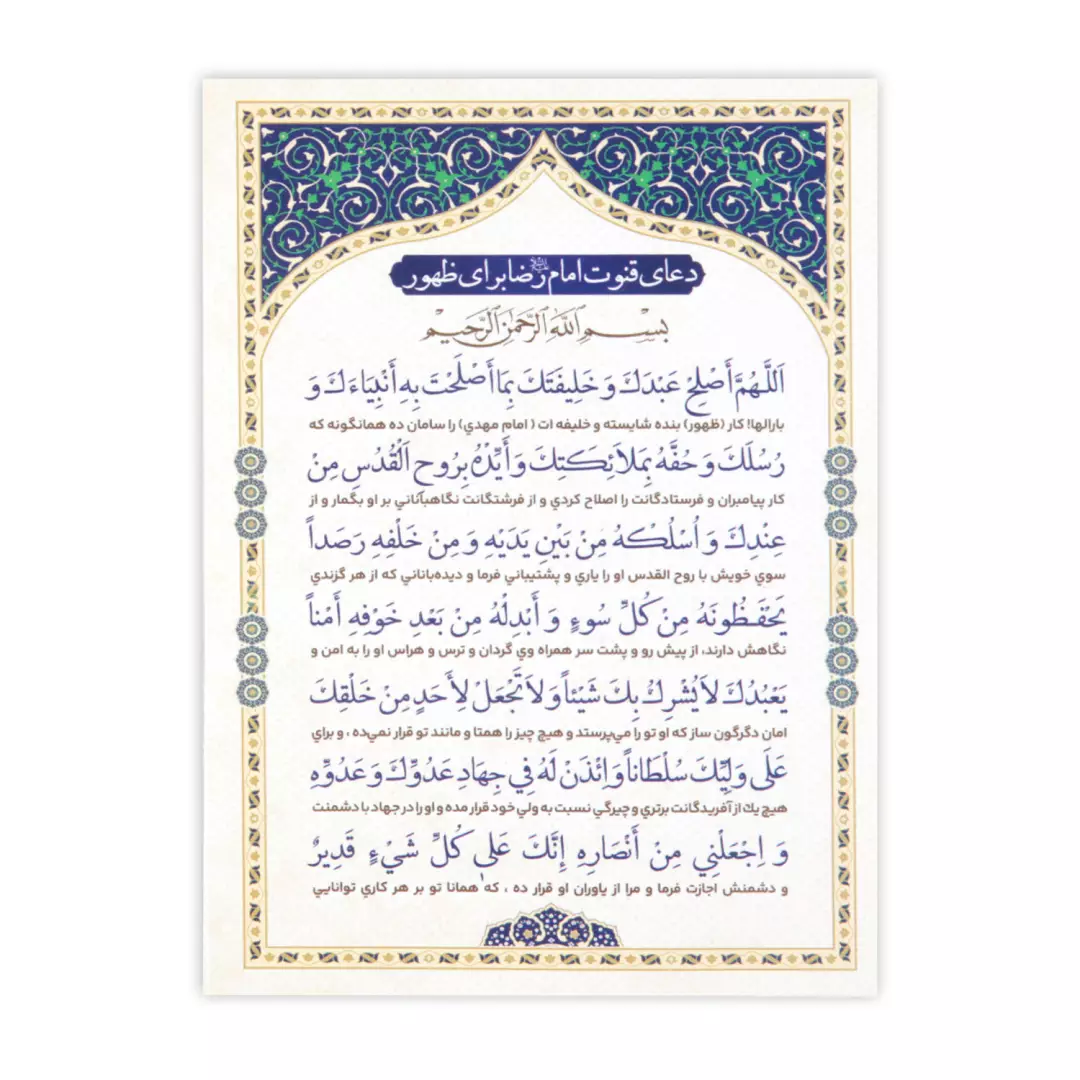 دعای قنوت امام رضا برای ظهور
بِسْمِ اللَّهِ الرَّحْمَٰنِ الرَّحِيمِ
اَللَّهُمَّ أَصْلِحْ عَبْدَكَ وَ خَلِيفَتَكَ بِمَا أَصْلَحْتَ بِهِ أَنْبِيَاءَكَ وَ
بارالها! کار (ظهور) بنده شایسته و خلیفه ات ( امام مهدي) را سامان ده همانگونه که
رُسُلَكَ وَ حُفَّهُ بِمَلاَئِكَتِكَ وَ أَيِّدْهُ بِرُوحِ الْقُدُسِ مِنْ
کار پیامبران و فرستادگانت را اصلاح کردي و از فرشتگانت نگاهبآناني بر او بگمار و از
عِنْدِكَ وَ اُسْلُكْهُ مِنْ بَيْنِ يَدَيْهِ وَ مِنْ خَلْفِهِ رَصَداً
سوي خویش با روح القدس او را یاري و پشتیباني فرما و دیده‌باناني که از هر گزندي
يَحْفَظُونَهُ مِنْ كُلِّ سُوءٍ وَ أَبْدِلْهُ مِنْ بَعْدِ خَوْفِهِ أَمْناً
نگاهش دارند، از پیش رو و پشت سر همراه وي گردان و ترس و هراس او را به امن و
يَعْبُدُكَ لاَ يُشْرِكُ بِكَ شَيْئاً وَ لاَ تَجْعَلْ لِأَحَدٍ مِنْ خَلْقِكَ
امان دگرگون ساز که او تو را مي‌پرستد و هیچ چیز را همتا و مانند تو قرار نمي‌ده ، و براي
عَلَى وَلِيِّكَ سُلْطَاناً وَ ائْذَنْ لَهُ فِي جِهَادِ عَدُوِّكَ وَ عَدُوِّهِ
هیچ یك از آفریدگانت برتري و چیرگي نسبت به ولي خود قرار مده و او را در جهاد با دشمنت
وَ اِجْعَلْنِي مِنْ أَنْصَارِهِ إِنَّكَ عَلَى كُلِّ شَيْءٍ قَدِيرٌ
و دشمنش اجازت فرما و مرا از یاوران او قرار ده ، که همانا تو بر هر کاري توانایي